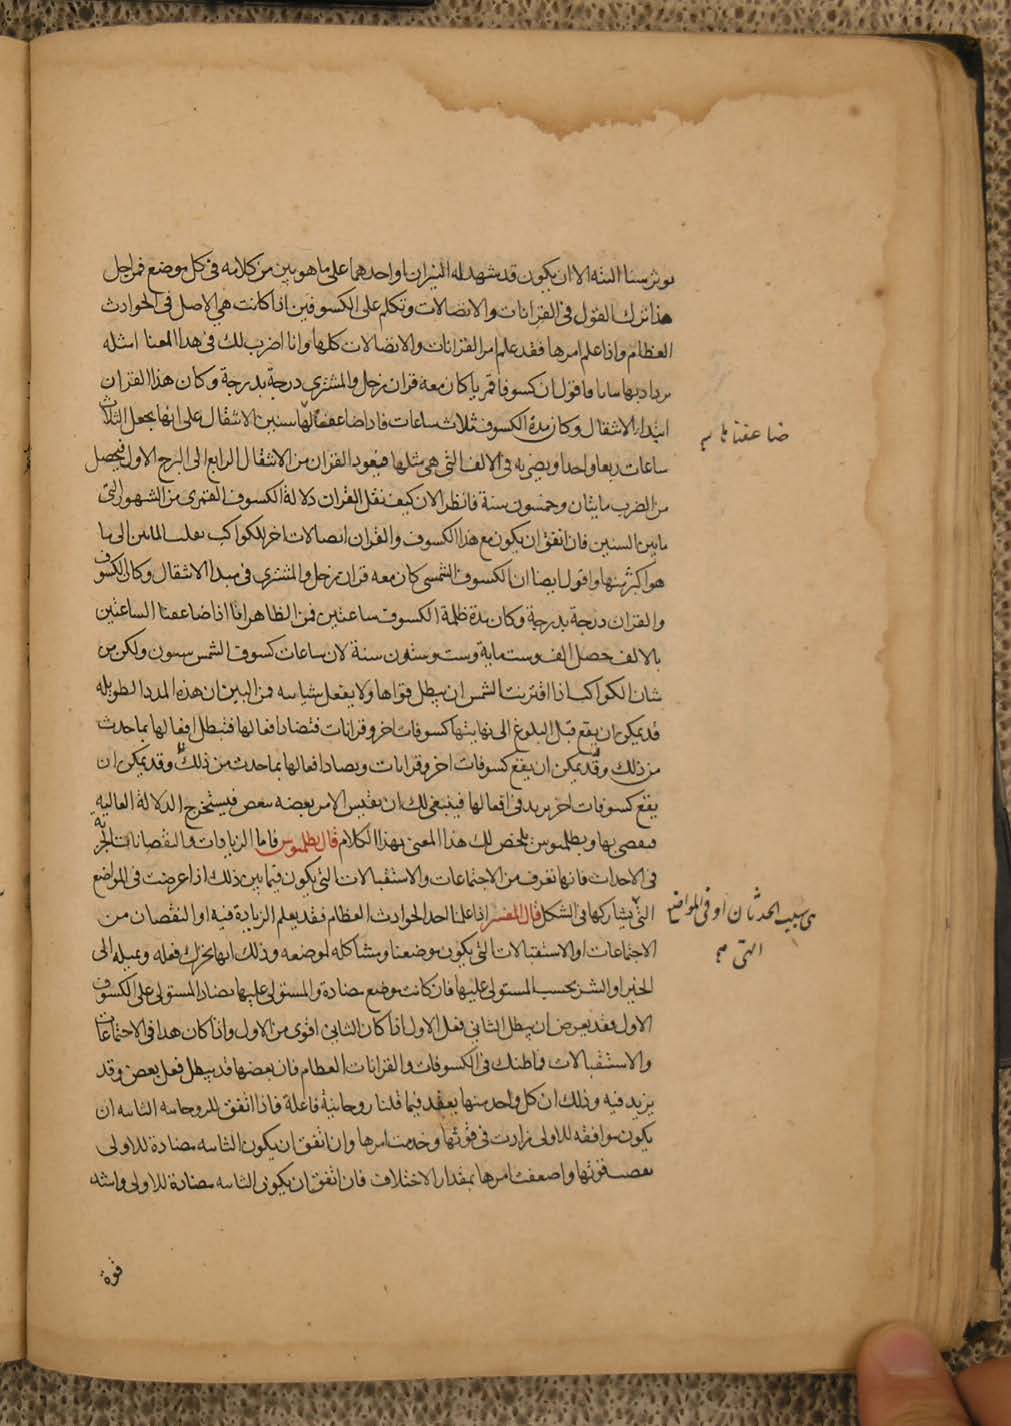 يوثر سنا البته الا ان يكون قد شهد له النيران او احدهما على ما هو بين من كلامه فى كل موضع فمن اجل
هذا ترك القول فى القرانات والاتصالات وتكلم على الكسوفين اذا كانت هى الاصل فى الحوادث
العظام واذا علم امرها فقد علم امر القرانات والاتصالات كلها وانا اضرب لك فى هذا المعنا امثله
فاقول ان كسوفا قمريا كان معه قران زحل والمشترى درجة بدرجة وكان هذا القران
ابتداء الانتقال وكان مدة الكسوف ثلاث ساعات فاذا ضاعفنا لها سنين الانتقال على انها يجعل الثلاث
ضاعفناها
ساعات ربعا واحدا ويضربه فى الالف التى هى مثلها فيعود القران من الانتقال الرابع الى البرج الاول فيحصل
من الضرب مايتان وخمسون سنة فانظر الان كيف نقل القران دلالة الكسوف القمرى من الشهور التى
ما بين السنين فان اتفق ان يكون مع هذا الكسوف والقران اتصالات اخر للكواكب الى ما
هو اكثر منها واقول ايضا ان الكسوف الشمسى كان معه قران زحل والمشترى فى مبدا الانتقال وكان الكسوف
والقران درجة بدرجة وكان مدة ظلمة الكسوف ساعتين فمن الظاهر انا اذا ضاعفنا الساعتين
بالالف حصل الف وستماية وست وستون سنة لان ساعات كسوف الشمس سنون ولكن من
شان الكواكب اذا اقتربت الشمس ان يبطل قواها ولا يفعل شيا فمن البين ان هذه المدد الطويله
قد يمكن ان يقع قبل البلوغ الى نهايتها كسوفات اخر وقرانات فتضاد افعالها فتبطل افعالها بما حدث
من ذلك وقد يمكن ان يقع كسوفات اخر وقرانات ويضاد افعالها بما حدث من ذلك وقد يمكن ان
يقع كسوفات اخر يزيد فى افعالها فينبغى لك ان تقيس الامر بعضه ببعض فيستخرج الدلالة الغالبه
فيقضى بها وبطلميوس يلخص لك هذا المعنى بهذا الكلام قال بطلميوس فاما الزيادات والنقصانات الجزئية
فى الاحداث فانها تعرف من الاجتماعات والاستقبالات التى يكون فيما بين ذلك اذا عرضت فى المواضع
التى يشاركها فى الشكل قال المفسر اذا علمنا احد الحوادث العظام فقد يعلم الزيادة فيه او النقصان من
سبب الحدثان او فى المواضع
التى
الاجتماعات او الاستقبالات التى يكون موضعنا ومشاكله لموضعه وذلك انها يحرك فعله ويميله الى
الخير او الشر بحسب المستولى عليها فان كانت موضع مضادة والمستولى عليها مضاد المستولى على الكسوف
الاول فقد يعرض ان يبطل الثانى فعل الاول اذا كان الثانى اقوى من الاول واذا كان هذا فى الاجتماعات
والاستقبالات فما ظنك فى الكسوفات والقرانات العظام فان بعضها قد يبطل فعل بعض وقد
يزيد فيه وذلك ان كل واحد منها يعقد فيما قلنا روحانية فاعلة فاذا اتفق للروحانيه الثانيه ان
يكون موافقه للاولى زادت فى قوتها وخدمت امرها وان اتفق ان يكون الثانيه مضادة للاولى
نقصت قوتها واضعفت امرها بمقدار الاختلاف فان اتفق ان يكون الثانيه مضادة للاولى واشد
قوة